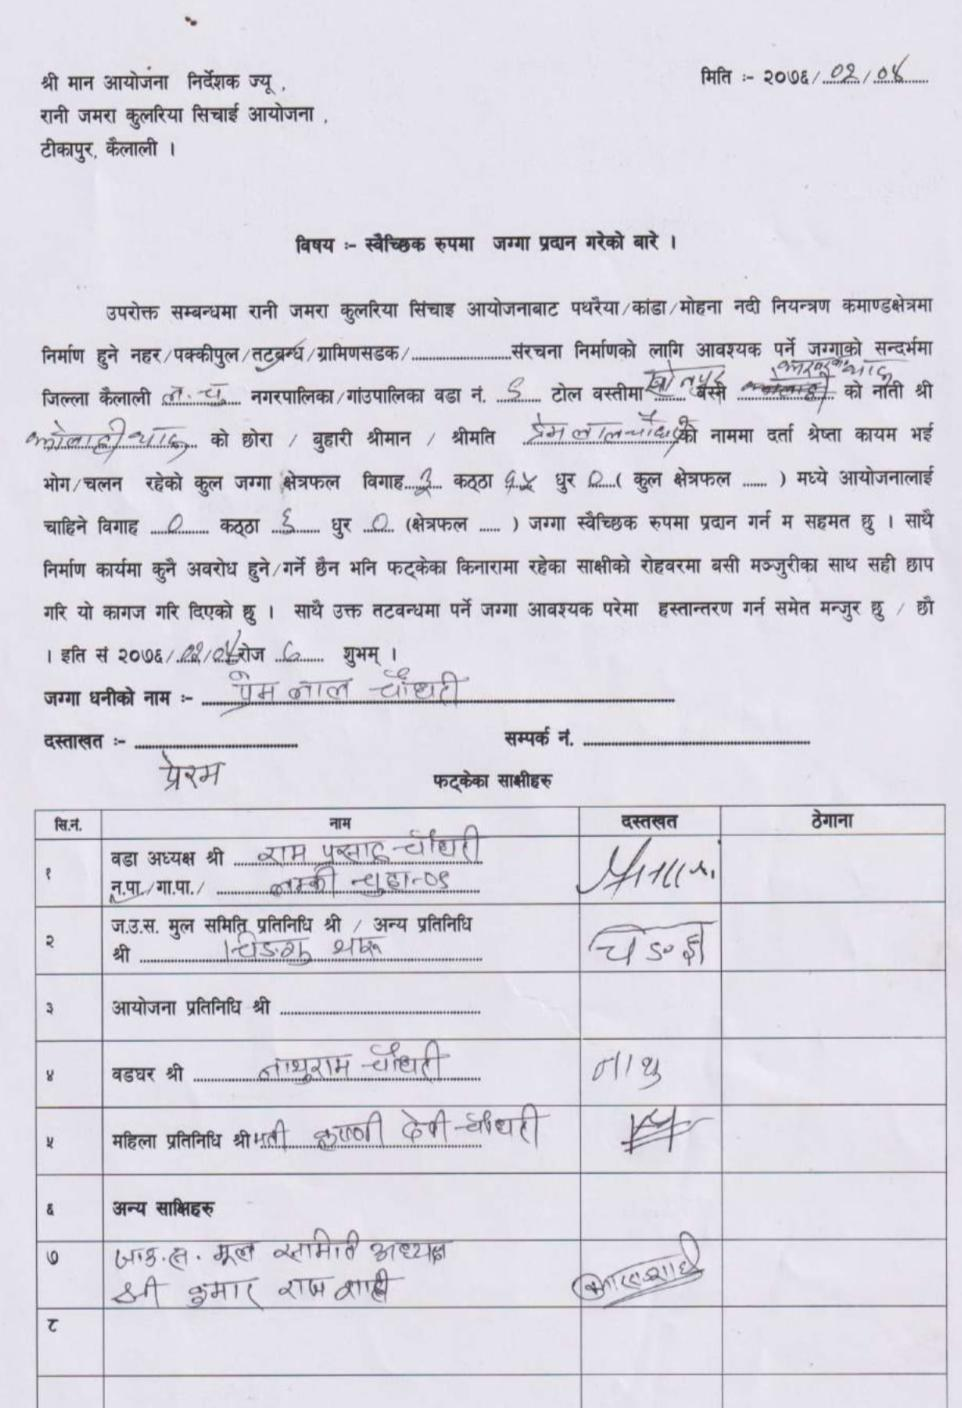 श्री मान आयोजना निर्देशक ज्यू ,
मिति :- २०७६/ ०२ / ०४
रानी जमरा कुलरिया सिचाई आयोजना ,
टीकापुर, कैलाली ।
विषय :- स्वैच्छिक रुपमा जग्गा प्रदान गरेको बारे ।
उपरोक्त सम्बन्धमा रानी जमरा कुलरिया सिंचाइ आयोजनाबाट पथरैया/कांडा/मोहना नदी नियन्त्रण कमाण्डक्षेत्रमा
निर्माण हुने नहर/पक्कीपुल/तटबन्ध/ग्रामिणसडक/........................संरचना निर्माणको लागि आवश्यक पर्ने जग्गाको सन्दर्भमा
जिल्ला कैलाली ल. चु. नगरपालिका/गांउपालिका वडा नं. टोल वस्तीमा बस्ने को नाती श्री
को छोरा / बुहारी श्रीमान / श्रीमति प्रेम लाल चौधरी को नाममा दर्ता श्रेष्ता कायम भई
भोग/चलन रहेको कुल जग्गा क्षेत्रफल विगाह..३.. कठ्ठा १५ धुर ०...( कुल क्षेत्रफल ...... ) मध्ये आयोजनालाई
चाहिने विगाह ...०........ कठ्ठा धुर ..०.. (क्षेत्रफल ..... ) जग्गा स्वैच्छिक रुपमा प्रदान गर्न म सहमत छु । साथै
निर्माण कार्यमा कुनै अवरोध हुने/गर्ने छैन भनि फट्केका किनारामा रहेका साक्षीको रोहवरमा बसी मञ्जुरीका साथ सही छाप
गरि यो कागज गरि दिएको छु । साथै उक्त तटवन्धमा पर्ने जग्गा आवश्यक परेमा हस्तान्तरण गर्न समेत मन्जुर छु / छौ
। इति सं २०७६/ ०२/०४ रोज ..६...... शुभम् ।
जग्गा धनीको नाम :- प्रेम लाल चौधरी
दस्ताखत :- ................................ सम्पर्क नं. ............................................
प्रेरम
फट्केका साक्षीहरु
सि.नं. नाम दस्तखत ठेगाना
१ वडा अध्यक्ष श्री राम प्रसाद चौधरी
न.पा./गा.पा./ लम्की चुहा-०९
२ ज.उ.स. मुल समिति प्रतिनिधि श्री / अन्य प्रतिनिधि
श्री थारू
३ आयोजना प्रतिनिधि श्री ............................................
४ वडघर श्री नाथुराम चौधरी नाथु
५ महिला प्रतिनिधि श्रीमती देवी चौधरी
६ अन्य साक्षिहरु
७ ज.उ.स. मूल समिति अध्यक्ष
श्री कुमार राज शाही
८